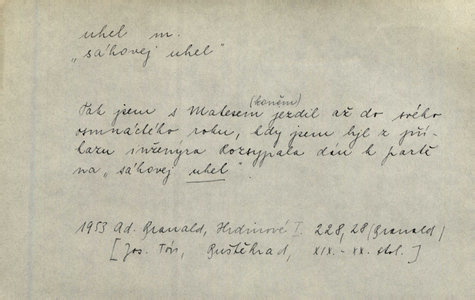 uhel m.
"sáhovej uhel"
(koněm)
Tak jsem s Matesem jezdil až do svého
osmnáctého roku, kdy jsem byl z pří-
kazu inženýra Rozsypala dán k partě
na "sáhovej uhel".
1953 Ad. Branald, Hrdinové I. 228, 28 (Branald)
[Jos. Tóis, Buštěhrad, XIX. - XX. stol.]